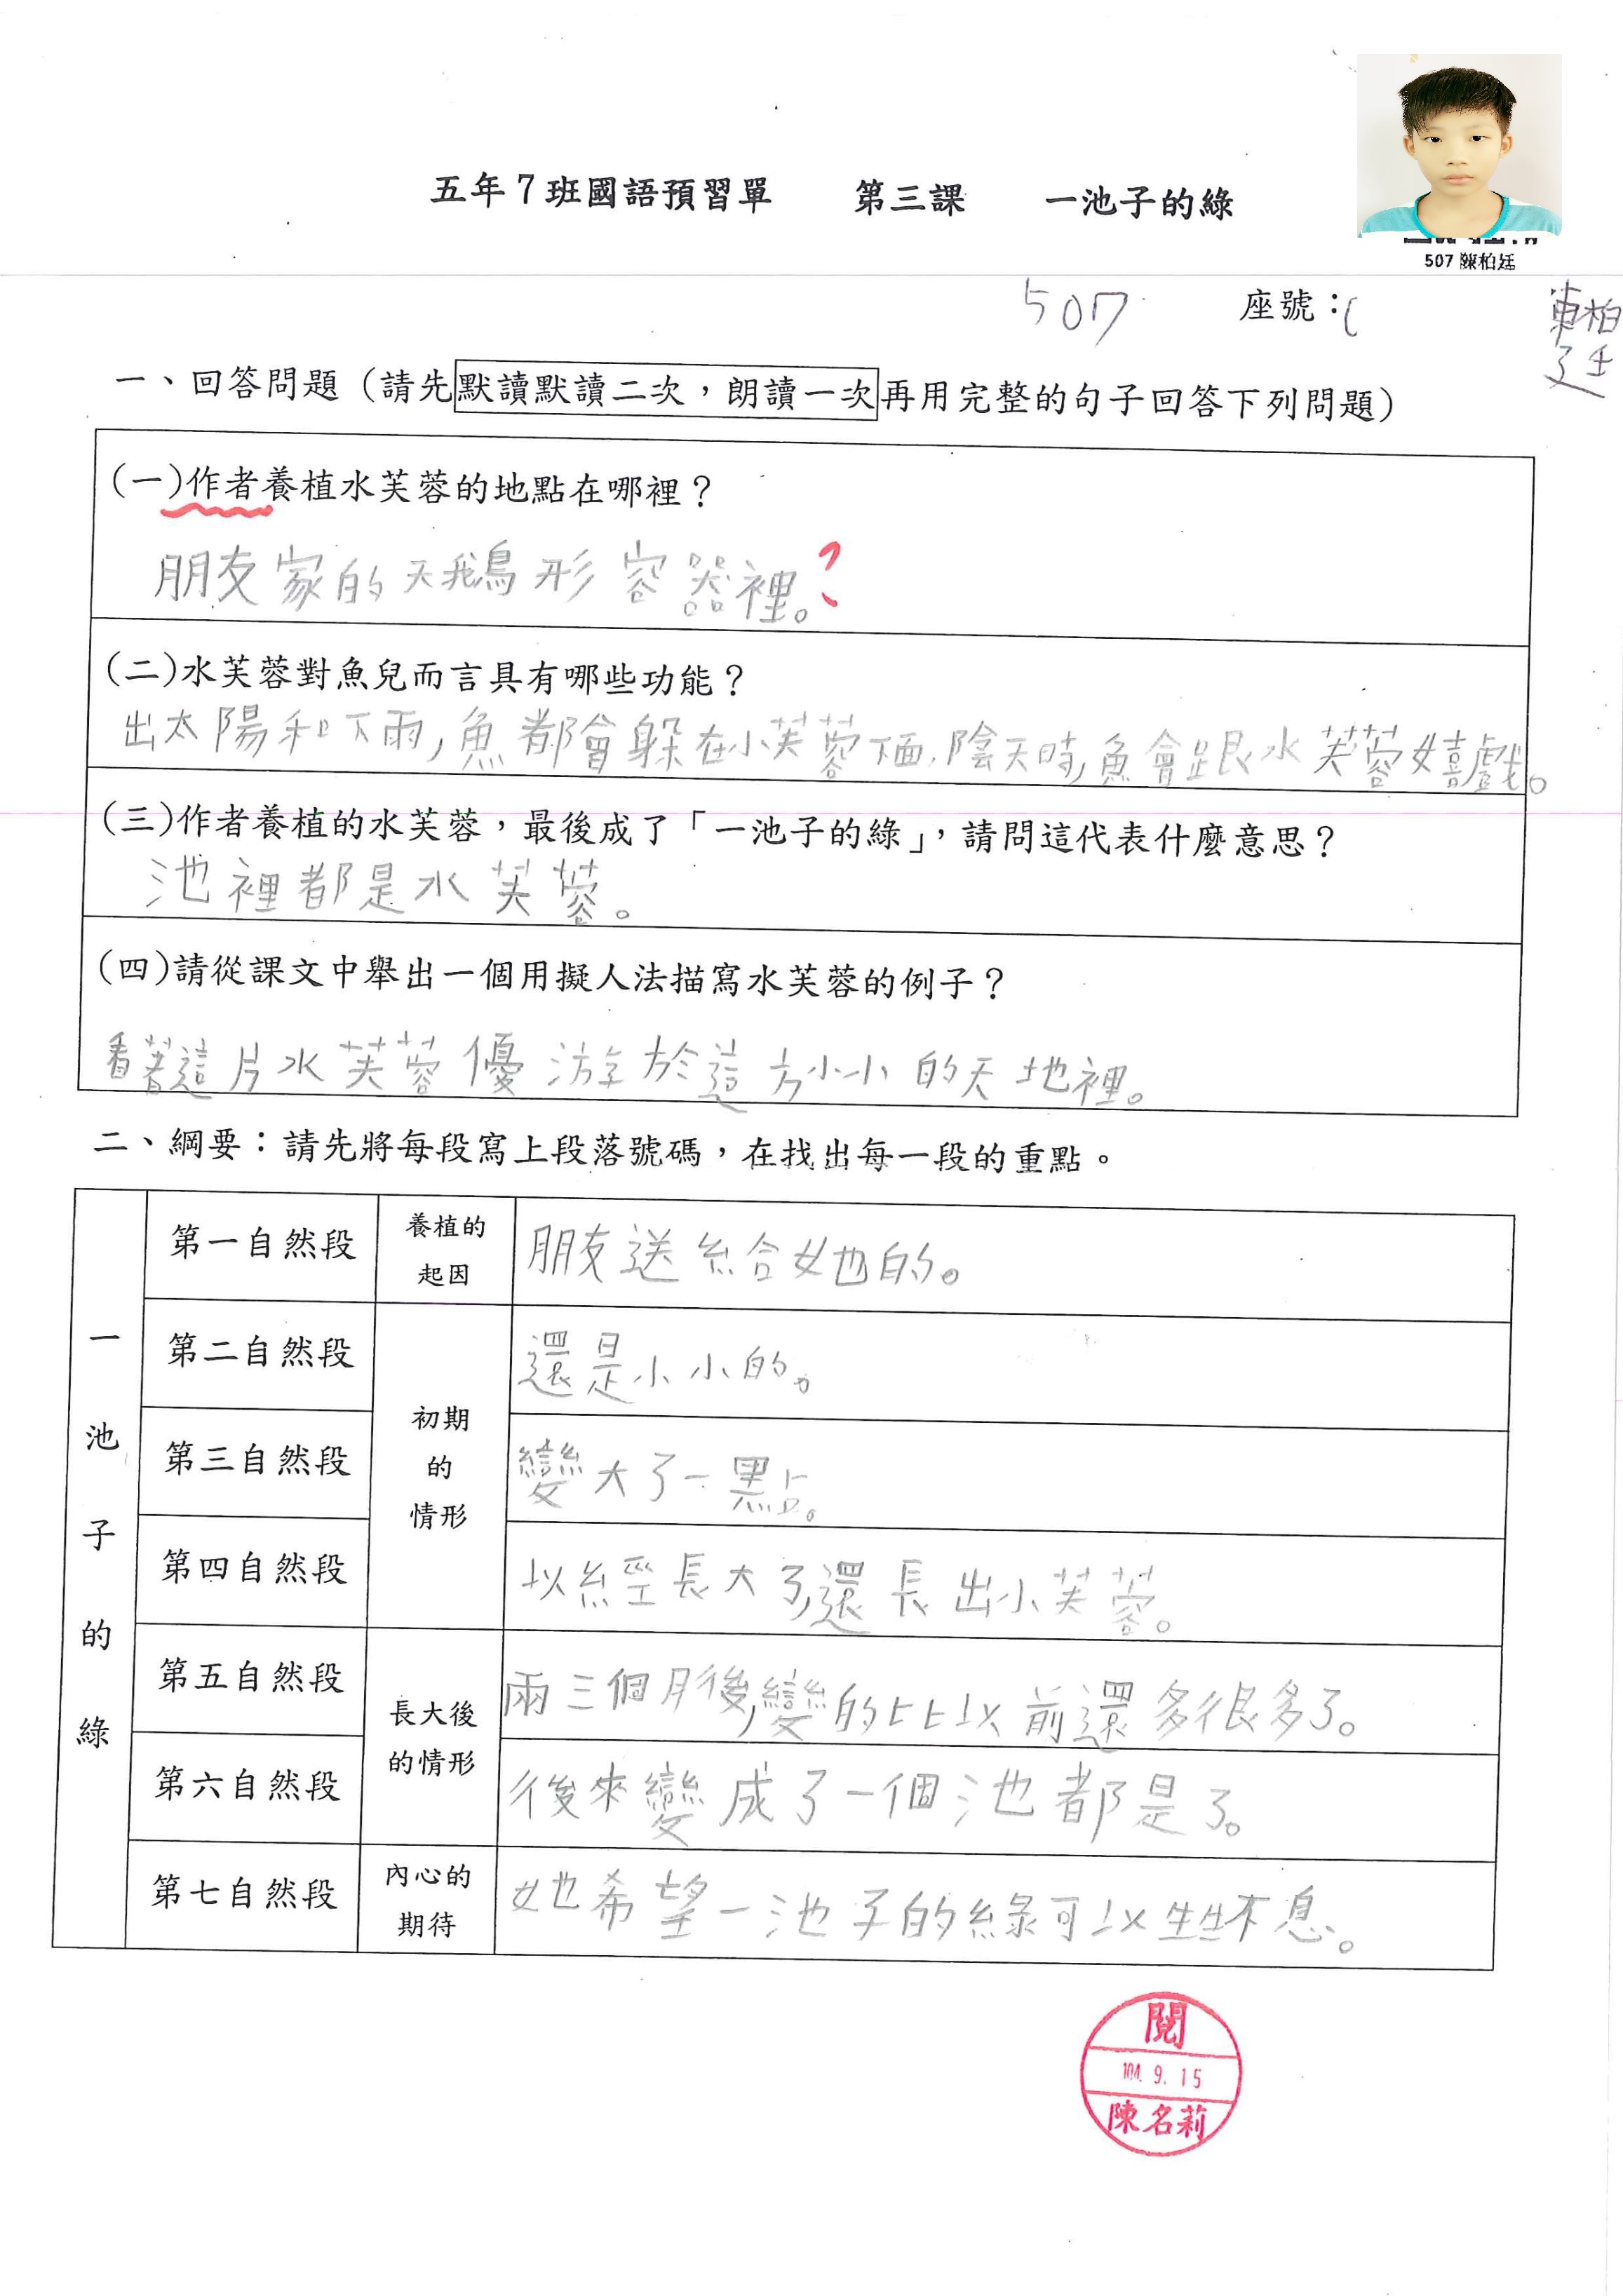 五年7班國語預習單 第三課 一池子的綠
507 陳柏廷
507 座號：
陳柏廷
一、回答問題（請先默讀默讀二次，朗讀一次再用完整的句子回答下列問題）
(一)作者養植水芙蓉的地點在哪裡？
朋友家的天鵝形容器裡。?
(二)水芙蓉對魚兒而言具有哪些功能？
出太陽和下雨，魚都會躲在小芙蓉下面，陰天時，魚會跟水芙蓉嬉戲。
(三)作者養植的水芙蓉，最後成了「一池子的綠」，請問這代表什麼意思？
池裡都是水芙蓉。
(四)請從課文中舉出一個用擬人法描寫水芙蓉的例子？
看著這片水芙蓉優游於這方小小的天地裡。
二、綱要：請先將每段寫上段落號碼，在找出每一段的重點。
一池子的綠
第一自然段 養植的起因 朋友送給她的。
第二自然段 初期的情形 還是小小的。
第三自然段 變大了一點。
第四自然段 以經長大了，還長出小芙蓉。
第五自然段 長大後的情形 兩三個月後，變的比以前還多很多了。
第六自然段 後來變成了一個池都是了。
第七自然段 內心的期待 她希望一池子的綠可以生生不息。
閱
104. 9. 15
陳名莉